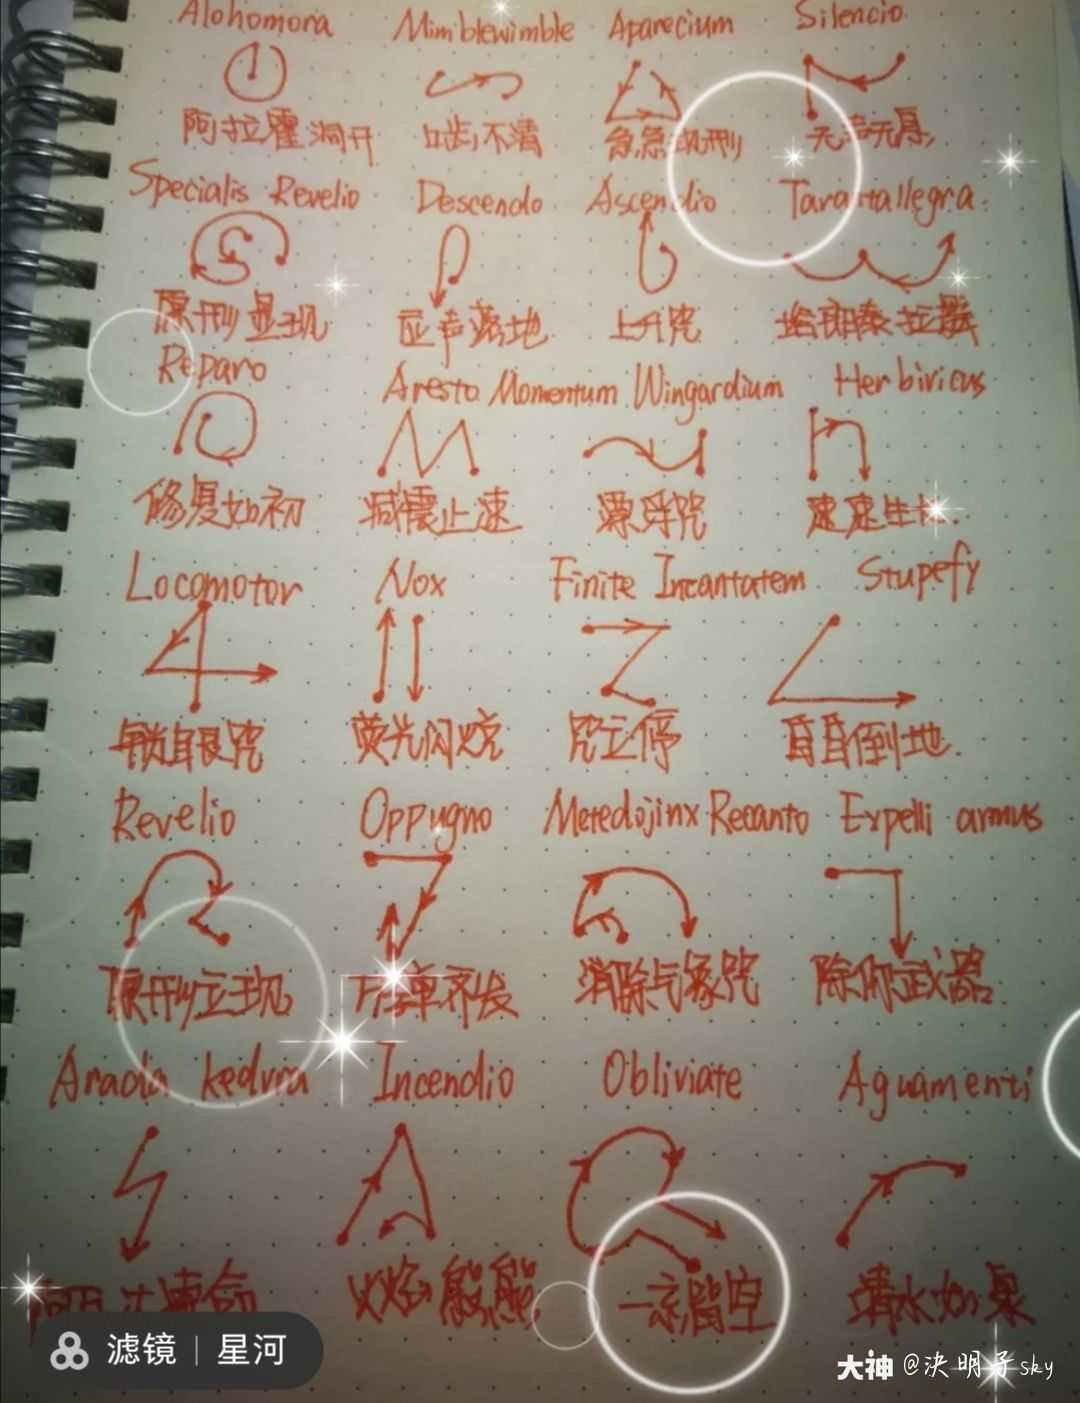 Alohomora Mimblewimble Aparecium Silencio
阿拉霍洞开 口齿不清 急急现形 无声无息
Specialis Revelio Descendo Ascendio Tarantallegra
原形显现 应声落地 上升咒 塔朗泰拉舞
Reparo Aresto Momentum Wingardium Herbivicus
修复如初 减震止速 漂浮咒 速速生长
Locomotor Nox Finite Incantatem Stupefy
咒立停 昏昏倒地
荧光闪烁
Revelio Oppugno Metedojinx Recanto Expelli armus
原形立现 万弹齐发 消除气象咒 除你武器
Avada kedvra Incendio Obliviate Aguamenti
火焰熊熊 一忘皆空 清水如泉
滤镜 | 星河
大神 @决明子sky